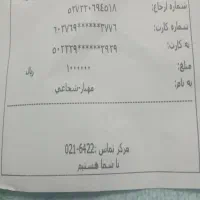 شماره ارجاع: ۵۲۷۲۲۰۶۹۴۵۱۸
شماره کارت: ۳۷۷۶******۲۰۳۷۶۹
به کارت: ۲۹۲۹******۵۰۲۲۲۹
مبلغ: ۱۰۰۰۰۰۰ ریال
به نام: مهیار-شجاعی
مرکز تماس :6422-021
با شما هستیم